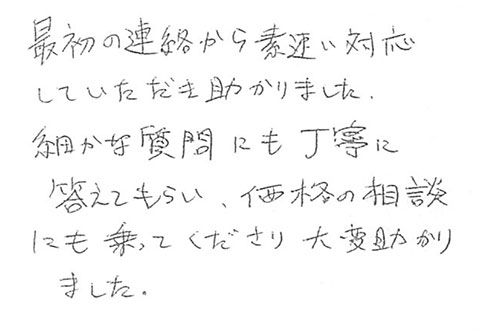 最初の連絡から素速い対応
していただき助かりました.
細かな質問にも丁寧に
答えてもらい、価格の相談
にも乗ってくださり大変助かり
ました。